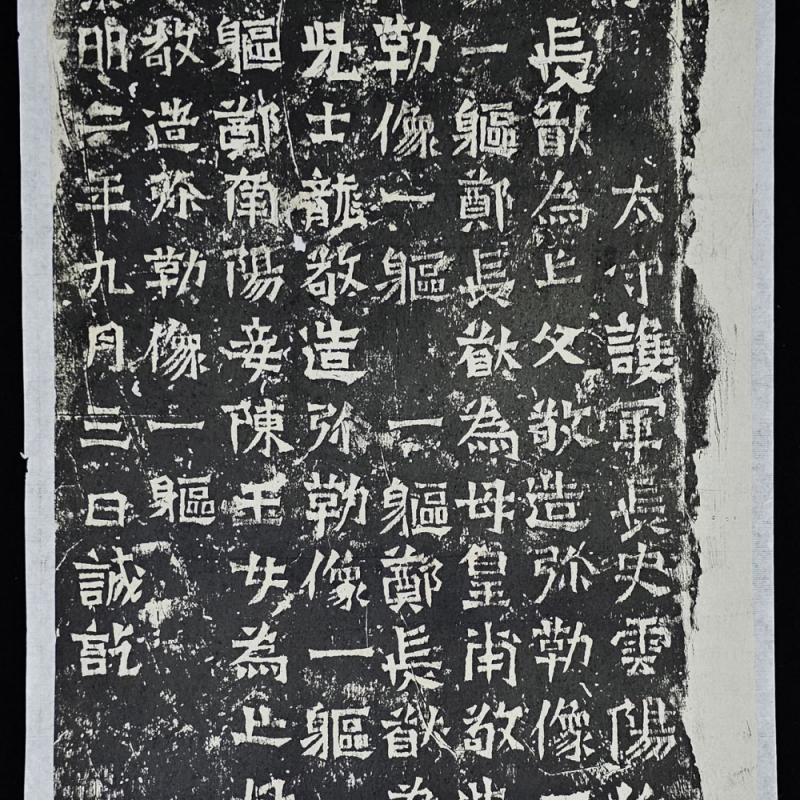 太守護軍長史雲陽
長猷為亡父敬造弥勒像一
一軀鄭長猷為母皇甫敬造
勒像一軀一軀鄭長猷為
児士龍敬造弥勒像一軀
軀鄭南陽妾陳玉女為亡母
敬造弥勒像一軀
明二年九月三日誡訖